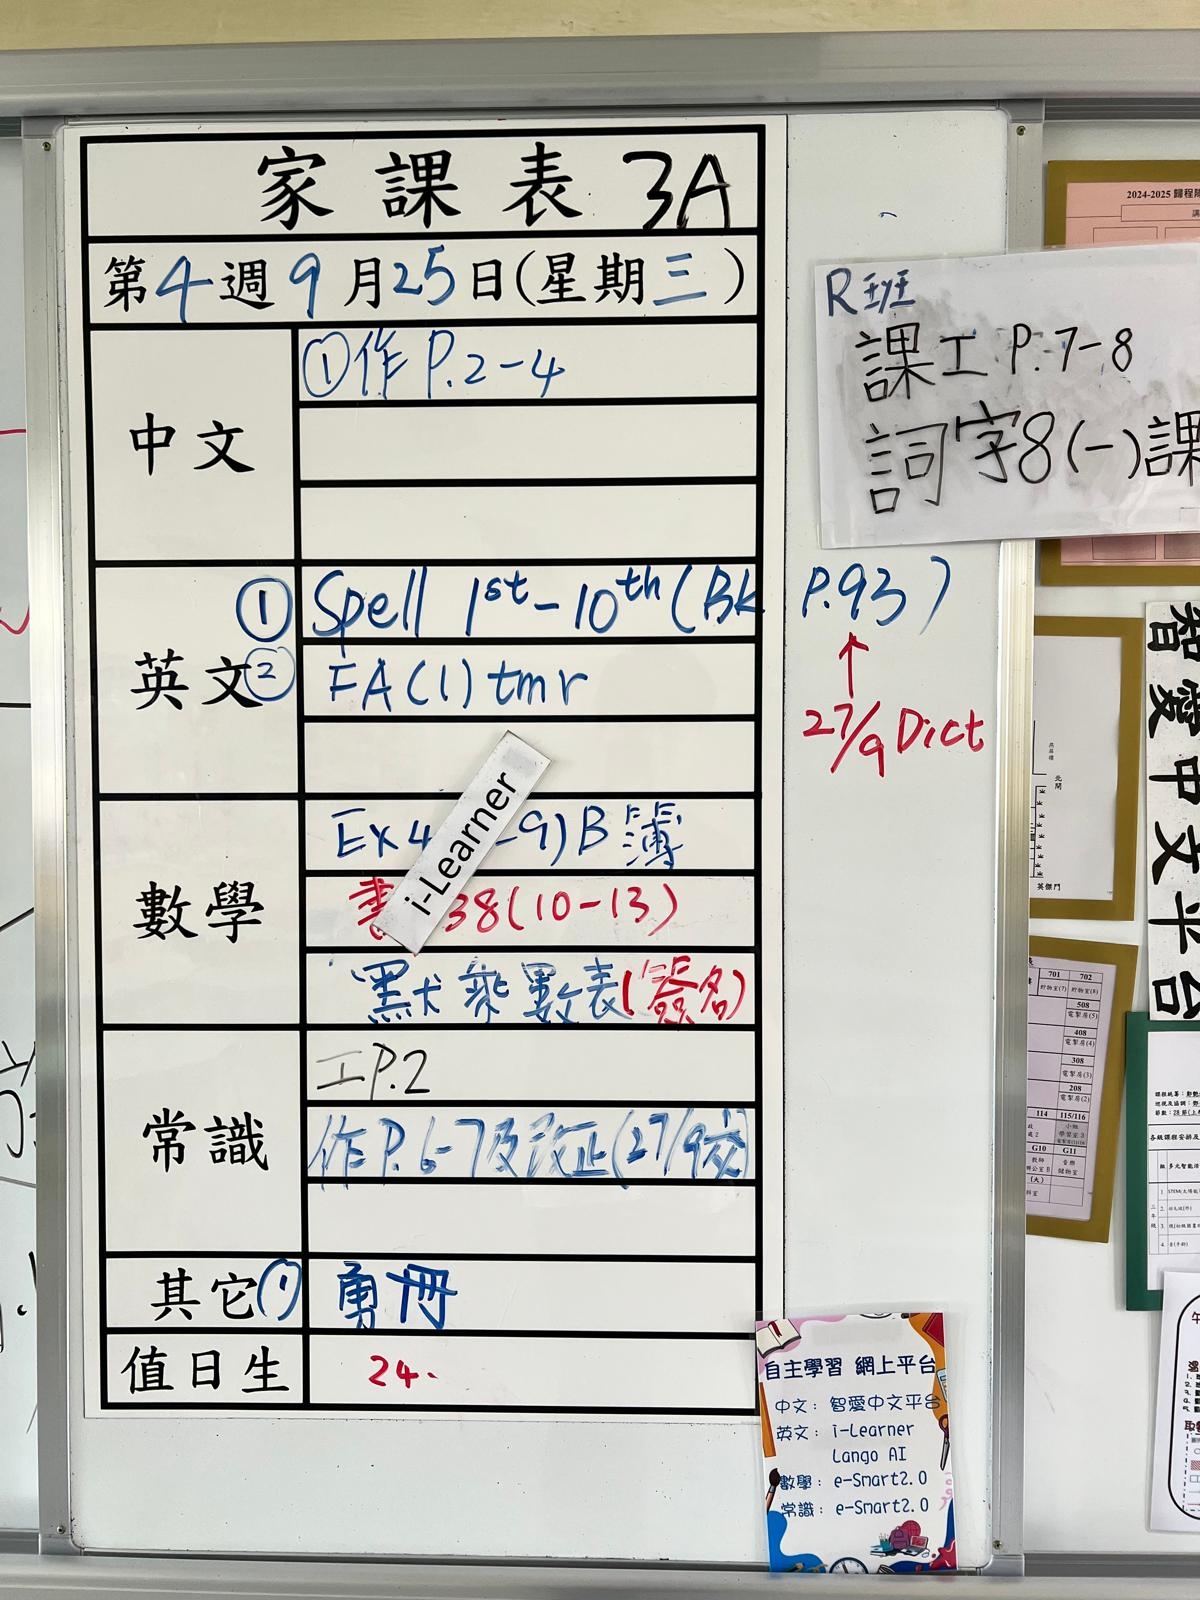 家課表 3A
第4週9月25日(星期三)
中文
①作 P.2-4
英文
① Spell 1st-10th (BK P.93)
② FA(1) tmr
27/9 Dict
i-Learner
數學
Ex4 -9) B簿
書 38(10-13)
默乘數表(簽名)
常識
工P.2
作P.6-7及改正(27/9交)
其它① 勇冊
值日生 24.
R班
課工 P.7-8
詞字8(一)課
2024-2025 歸程
智愛中文平台
北閘
英傑門
701 702
貯物室(7) 貯物室(8)
508
電掣房(5)
408
電掣房(4)
308
電掣房(3)
208
電掣房(2)
114 115/116
G10 G11
自主學習 網上平台
中文: 智愛中文平台
英文: i-Learner
Lango AI
數學: e-Smart2.0
常識: e-Smart2.0